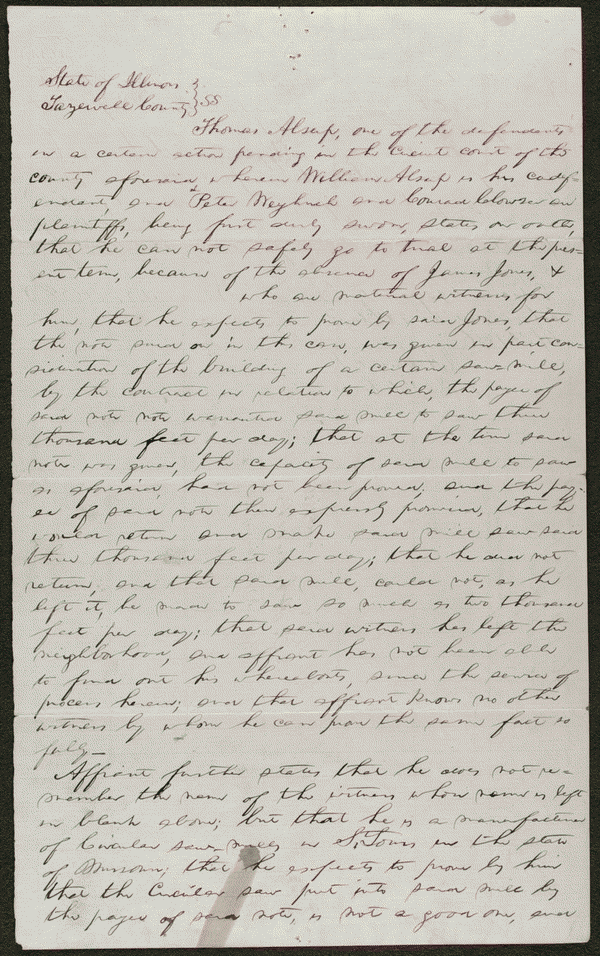 State of Illinois }
Tazewell County } SS
Thomas Alsup, one of the defendants
in a certain action pending in the Circuit court of the
county aforesaid, wherein William Alsup is his codef-
endant, and Peter Weyhrich and Conrad are
plaintiffs, being first duly sworn, states on oath,
that he can not safely go to trial at the pres-
ent term, because of the absence of James Jones, &
who are material witnesses for
him, that he expects to prove by said Jones, that
the note sued on in this case, was given in part con-
sideration of the building of a certain saw-mill,
by the contract in relation to which, the payee of
said note warranted said mill to saw three
thousand feet per day; that at the time said
note was given, the capacity of said mill to saw
as aforesaid, had not been proved; and the pay-
ee of said note then expressly promised, that he
would return and make said mill saw said
three thousand feet per day; that he did not
return, and that said mill, could not, as he
left it, be made to saw so much as two thousand
feet per day; that said witness has left the
neighborhood, and affiant has not been able
to find out his whereabouts, since the service of
process herein; and that affiant knows no other
witness by whom he can prove the same fact so
fully—
Affiant further states that he does not re-
member the name of the witness whose name is left
in blank above; but that he is a manufacturer
of Circular saw-mills in St. Louis in the state
of Missouri; that he expects to prove by him
that the Circular saw put into said mill by
the payee of said note, is not a good one, and